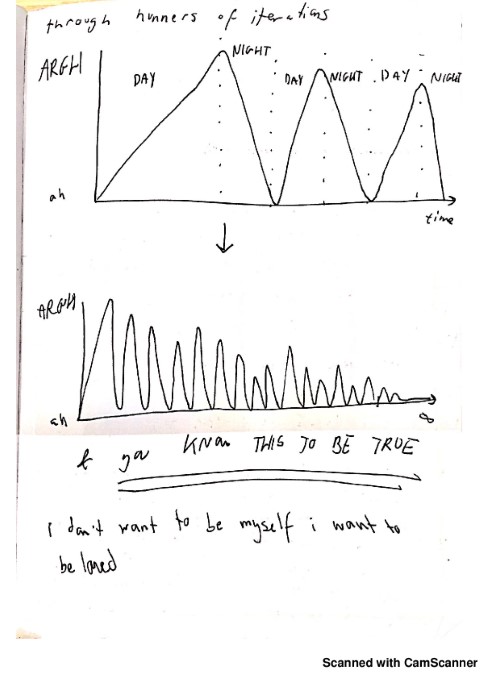 through hunners of iterations
ARGH
DAY
NIGHT
DAY
NIGHT
DAY
NIGHT
ah
time
ARGH
ah
∞
& you KNOW THIS TO BE TRUE
I don't want to be myself i want to
be loved
Scanned with CamScanner